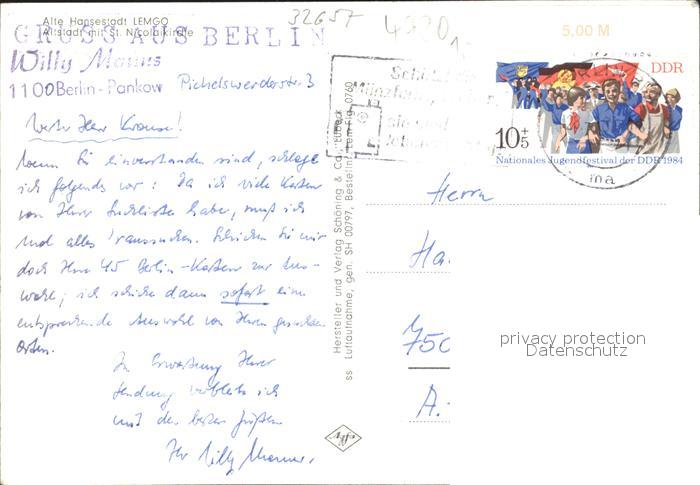 Alte Hansestadt LEMGO
Altstadt mit St. Nicolaikirche
GRUSS AUS BERLIN
32657
5,00 M
Willy Manns
1100 Berlin-Pankow Pichelswerderstr. 3
DDR
10+5
Nationales Jugendfestival der DDR 1984
Herr Krause!
Wenn Sie einverstanden sind, schlage
ich folgendes vor: Da ich viele Karten
von Ihrer Suchliste habe, muß ich
mal alles 'raussuchen. Schicken Sie mir
doch Ihre 45 Berlin-Karten zur Aus-
wahl; ich schicke dann sofort eine
entsprechende Auswahl von Ihren gesuchten
Orten.
In Erwartung Ihrer
Sendung verbleibe ich
mit den besten Grüßen
Ihr Willy Manns.
Herrn
Ha.
750
A.
Hersteller und Verlag Schöning & Co., Lübeck
ss Luftaufnahme, gen. SH 00797, Bestellnr. Lem Flg. 0760
Agfa
privacy protection
Datenschutz